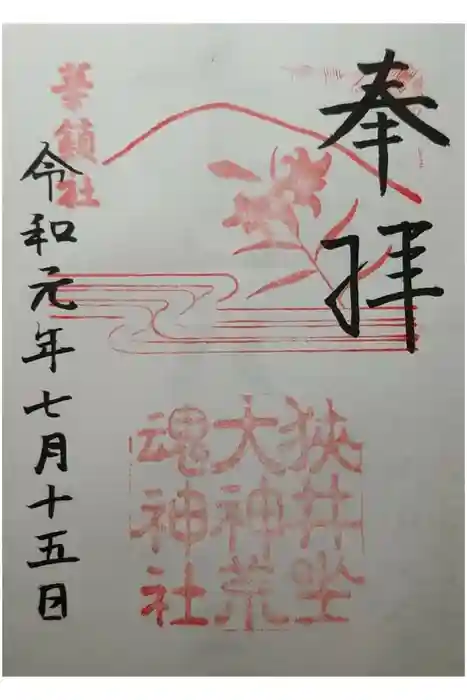 奉拝
狭井坐
大神荒
魂神社
華鎮社
令和元年七月十五日